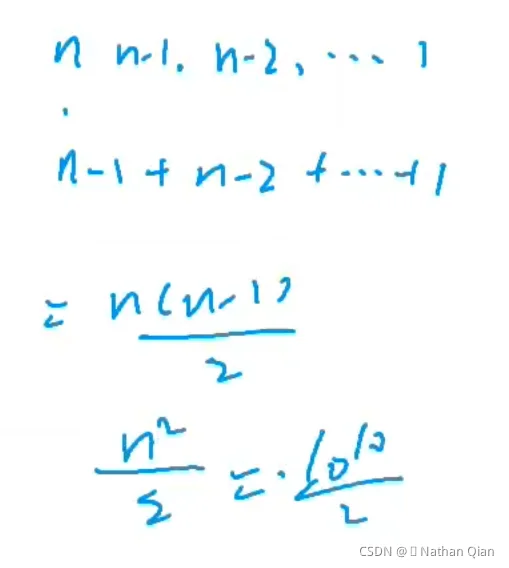 n n-1, n-2, ... 1
n-1 + n-2 + ... + 1
= n(n-1)
2
n²
2 = 10¹⁰
2
CSDN @ Nathan Qian